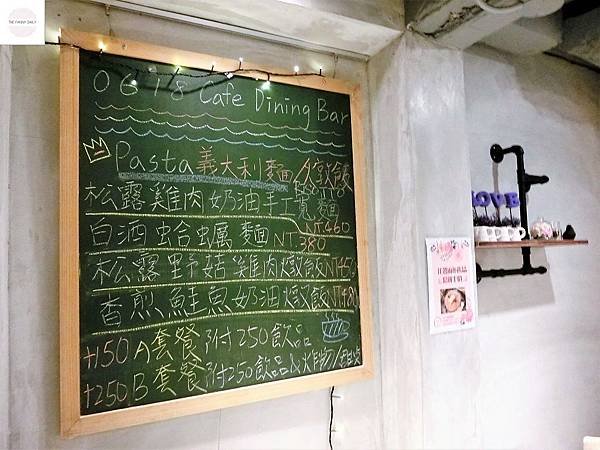 THE FUNNY DAILY
0618 Cafe Dining Bar
Pasta義大利麵/燉飯
松露雞肉奶油手工寬麵 NT.460
白酒蛤蠣麵 NT.380
松露野菇雞肉燉飯 NT.450
香煎鮭魚奶油燉飯 NT.480
+150 A套餐附250飲品
+250 B套餐附250飲品&炸物/甜點
LOVE